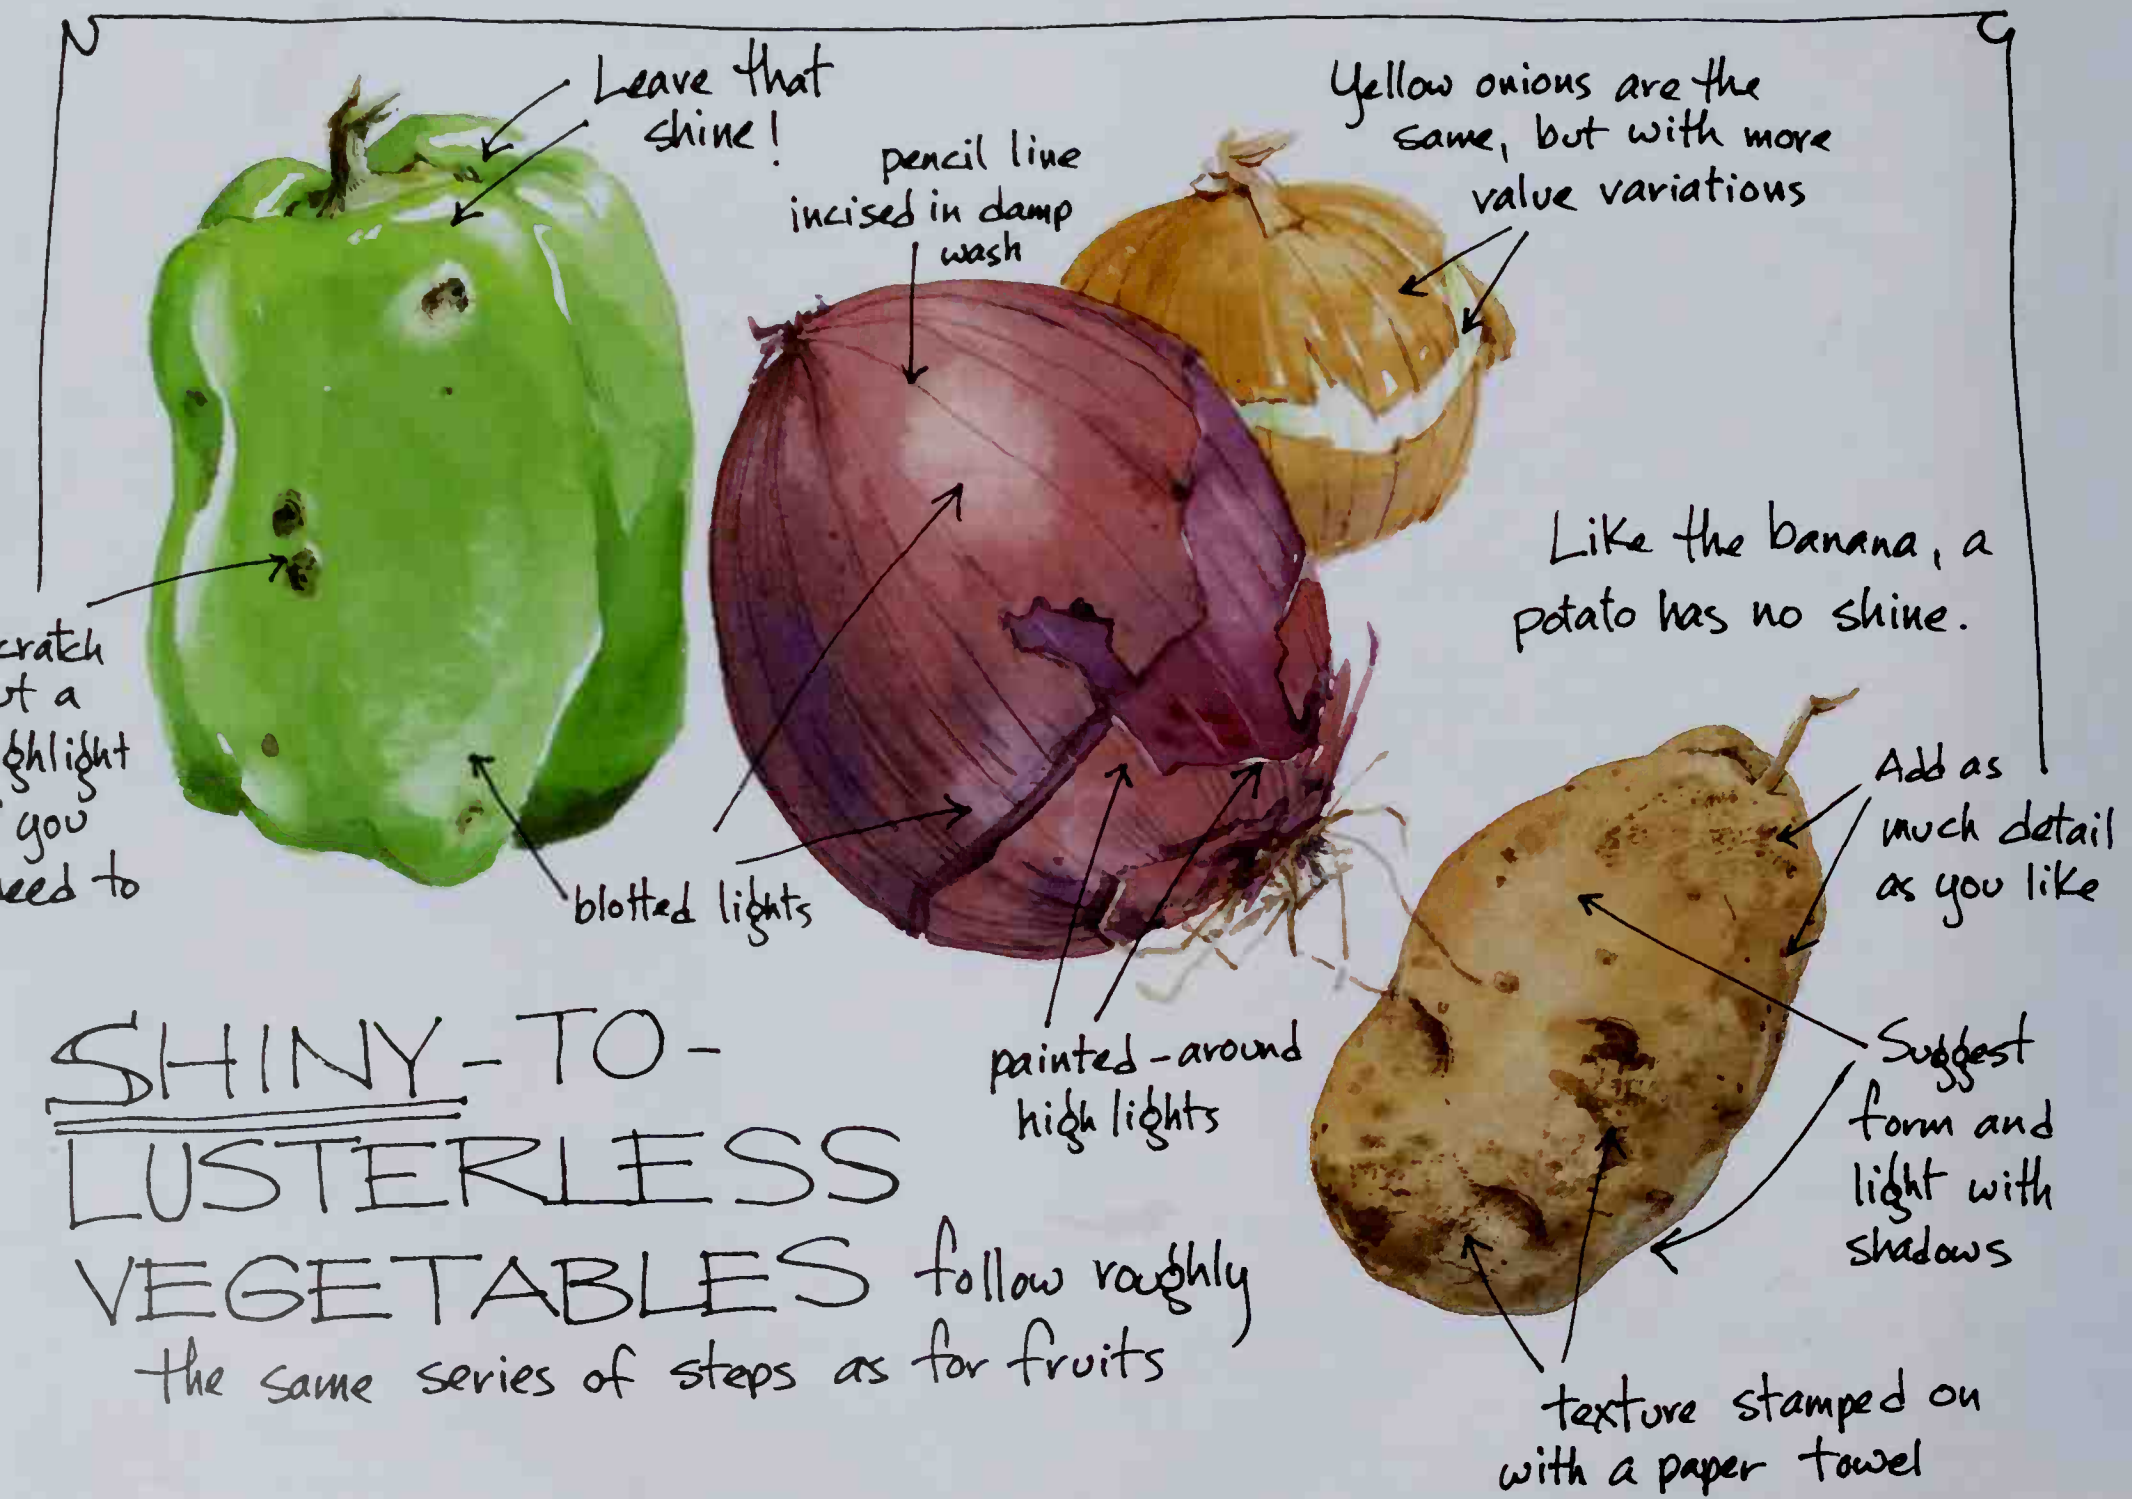 Leave that
shine!
pencil line
incised in damp
wash
Yellow onions are the
same, but with more
value variations
Like the banana, a
potato has no shine.
cratch
ut a
ghlight
you
need to
blotted lights
painted-around
highlights
Add as
much detail
as you like
Suggest
form and
light with
shadows
SHINY-TO-
LUSTERLESS
VEGETABLES follow roughly
the same series of steps as for fruits
texture stamped on
with a paper towel